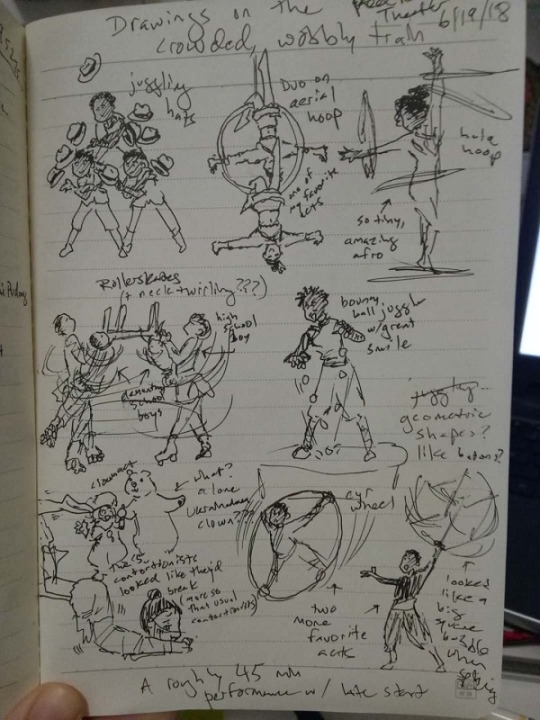 Drawings on the
crowded, wobbly train
Theater
6/19/18
juggling
hats
Duo on
aerial
hoop
one of
my favorite
acts
hula
hoop
so tiny,
amazing
afro
Rollerskates
(+ neck twirling???)
high
school
boy
elementary
school
boys
bouncy
ball juggler
w/great
smile
juggler...
geometric
shapes?
like batons?
clown act
what?
a lone
clown???
cyr
wheel
contortionists
looked like they'd
break
(more so
than usual
contortionists)
two
more
favorite
acts
looked
like a
big
square
bubble
when
A roughly 45 min
performance w/ late start